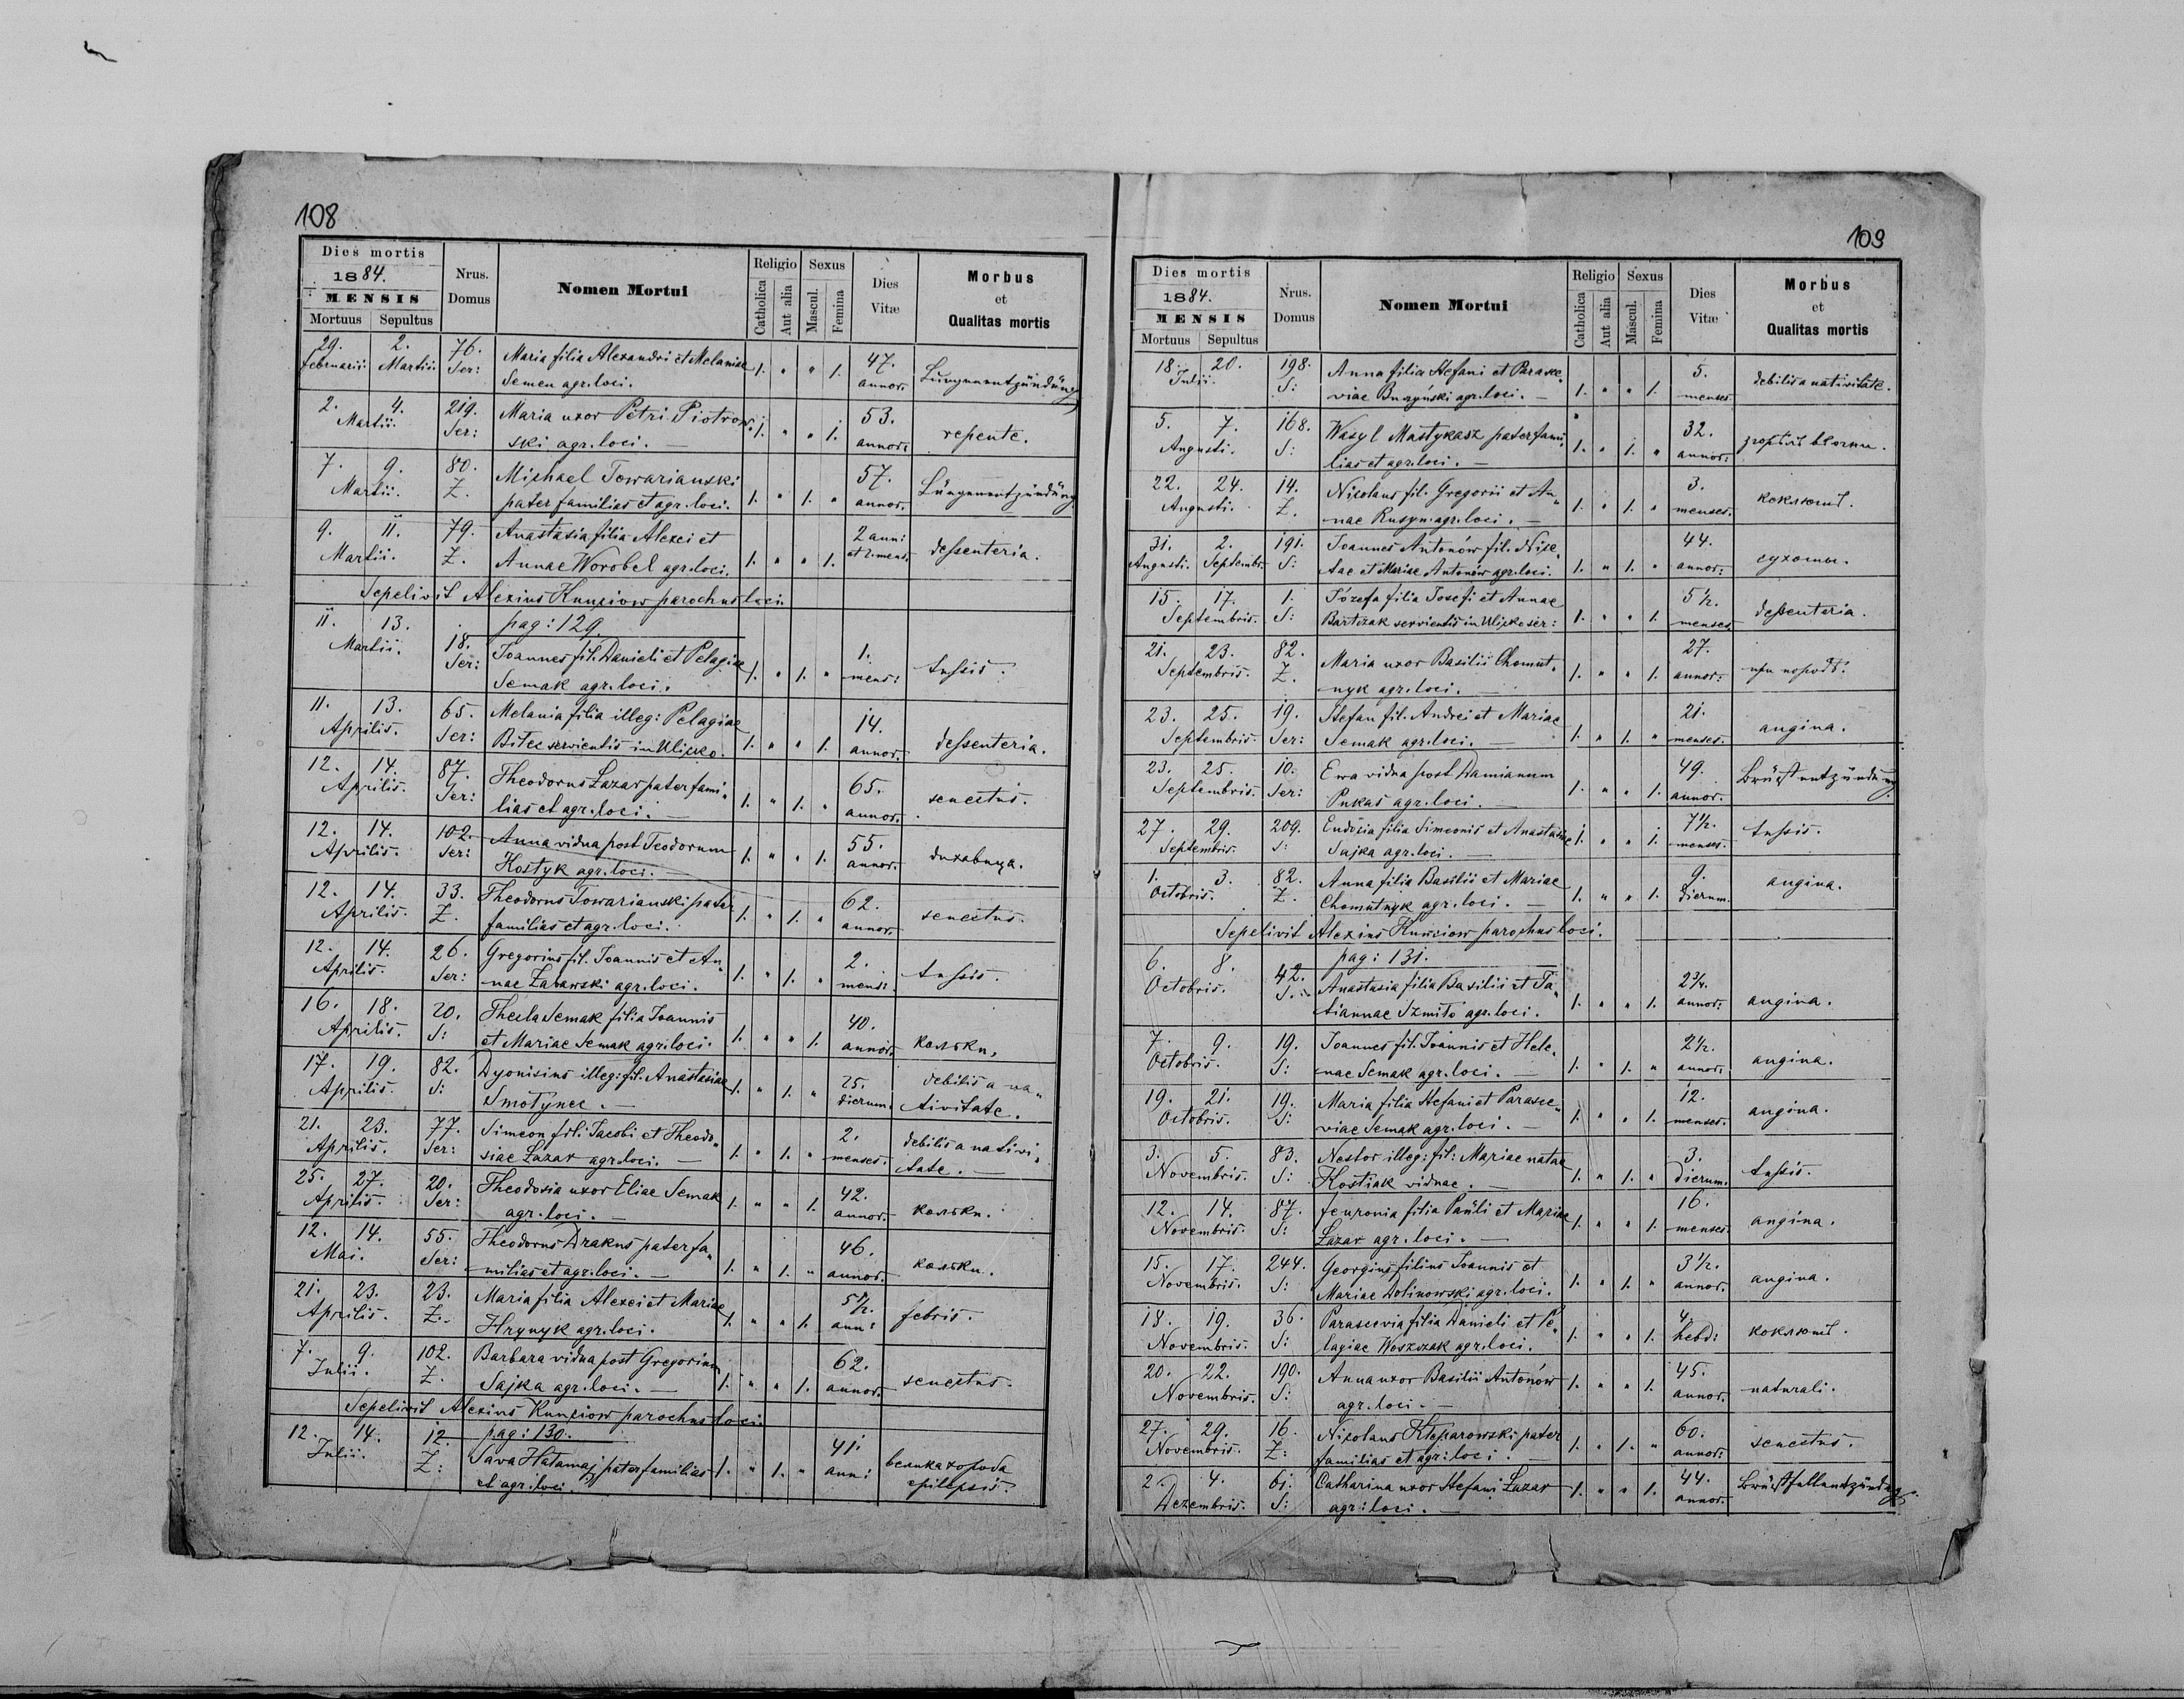 108
Dies mortis
1884.
MENSIS
Mortuus Sepultus
Nrus. Domus
Nomen Mortui
Religio
Catholica
Aut alia
Sexus
Mascul.
Femina
Dies Vitæ
Morbus
et
Qualitas mortis
29. 2. 76. Maria filia Alexandri et Melaniae 1. " " 1. 47. Lungenentzündung
Februarii. Martii. Ser: Semen agr. loci. annor.
2. 4. 219. Maria uxor Petri Piotrow- 1. " " 1. 53. repente.
Martii. Ser: ski agr. loci. annor.
7. 9. 80. Michael Towarianski 57. Lungenentzündung
Martii. Z. pater familias et agr. loci. 1. " 1. " annor.
9. 11. 79. Anastasia filia Alexei et 2 ann: dessenteria.
Martii. Z. Annae Worobel agr. loci. 1. " " 1. et 2. mens.
Sepelivit Alexius Kunciow parochus loci.
pag: 129.
11. 13. 18. Joannes fil. Danieli et Pelagiae 1. " 1. " 1. tussis.
Martii. Ser: Semak agr. loci. mens:
11. 13. 65. Melania filia illeg: Pelagiae 14. dessenteria.
Aprilis. Ser: Bitec servientis in Ulicko. 1. " " 1. annor.
12. 14. 87. Theodorus Łazar pater fami- 65. senectus.
Aprilis. Ser: lias et agr. loci. 1. " 1. " annor.
12. 14. 102. Anna vidua post Teodorum 1. " " 1. 55. дихавица.
Aprilis. Ser: Kostyk agr. loci. annor.
12. 14. 33. Theodorus Towarianski pater 1. " 1. " 62. senectus.
Aprilis. Z. familias et agr. loci. annor.
12. 14. 26. Gregorius fil. Joannis et An- 2. tussis.
Aprilis. Ser: nae Zabawski agr. loci. 1. " 1. " mens:
16. 18. 20. Thecla Semak filia Joannis 40. кольки.
Aprilis. S: et Mariae Semak agr. loci. 1. " " 1. annor.
17. 19. 82. Dyonisius illeg: fil. Anastasiae 1. " 1. " 25. debilis a na-
Aprilis. S: Smotynec. dierum. tivitate.
21. 23. 77. Simeon fil: Jacobi et Theodo- 2. debilis a nativi-
Aprilis. Ser: siae Łazar agr. loci. 1. " 1. " menses. tate.
25. 27. 20. Theodosia uxor Eliae Semak 1. " " 1. 42. кольки.
Aprilis. Ser: agr. loci. annor.
12. 14. 55. Theodorus Drakus pater fa- 46. кольки.
Mai. Ser: milias et agr. loci. 1. " 1. " annor.
21. 23. 23. Maria filia Alexei et Mariae 1. " " 1. 5 1/2. febris.
Aprilis. Z. Hrynyk agr. loci. ann:
7. 9. 102. Barbara vidua post Gregorium 62. senectus.
Julii. Z. Sajka agr. loci. 1. " " 1. annor.
Sepelivit Alexius Kunciow parochus loci.
pag: 130.
12. 14. 12. Sava Hatamaj pater familias 1. " 1. " 41. велика хороба
Julii. Z: et agr. loci. ann: epilepsis.
109
Dies mortis
1884.
MENSIS
Mortuus Sepultus
Nrus. Domus
Nomen Mortui
Religio
Catholica
Aut alia
Sexus
Mascul.
Femina
Dies Vitæ
Morbus
et
Qualitas mortis
18. 20. 198. Anna filia Stefani et Parasce- 5. debilis a nativitate.
Julii. S: viae Burzyński agr. loci. 1. " " 1. menses
5. 7. 168. Wasyl Mastykasz pater fami- 32.
Augusti. S: lias et agr. loci. 1. " 1. " annor:
22. 24. 14. Nikolaus fil. Gregorii et An- 3. коклюшъ.
Augusti. Z. nae Rusyn agr. loci. 1. " 1. " menses.
31. 2. 191. Joannes Antonów fil. Nike- 44. сухоты.
Augusti. Septembr. S: tae et Mariae Antonów agr. loci. 1. " 1. " annor:
15. 17. 1. Józefa filia Josefi et Annae 5 1/2. dessenteria.
Septembris. S: Bartczak servientis in Ulicko ser: 1. " " 1. menses.
21. 23. 82. Maria uxor Basilii Chomut- 27. при породѣ.
Septembris. Z. nyk agr. loci. 1. " " 1. annor:
23. 25. 19. Stefan fil. Andrei et Mariae 21. angina.
Septembris. Ser: Semak agr. loci. 1. " 1. " menses.
23. 25. 10. Ewa vidua post Damianum 49. Brustentzündung.
Septembris. Ser: Pukas agr. loci. 1. " " 1. annor.
27. 29. 209. Eudosia filia Simeonis et Anastasiae 1. " " 1. 7 1/2. tussis.
Septembris. S: Sajka agr. loci. menses.
1. 3. 82. Anna filia Basilii et Mariae 9. angina.
Octobris. Z. Chomutnyk agr. loci. 1. " " 1. dierum.
Sepelivit Alexius Kunciow parochus loci.
pag: 131.
6. 8. 42. Anastasia filia Basilii et Ta- 2 3/4. angina.
Octobris. S: tiannae Szmiło agr. loci. 1. " " 1. annor:
7. 9. 19. Joannes fil. Joannis et Hele- 2 1/2. angina.
Octobris. S: nae Semak agr. loci. 1. " 1. " annor:
19. 21. 19. Maria filia Stefani et Parasce- 12. angina.
Octobris. S: viae Semak agr. loci. 1. " " 1. menses.
3. 5. 83. Nestor illeg: fil: Mariae natae 3. tussis.
Novembris. S: Kostiak viduae. 1. " 1. " dierum.
12. 14. 87. Feuronia filia Pauli et Mariae 1. " " 1. 16. angina.
Novembris. S: Łazar agr. loci. menses.
15. 17. 244. Georgius filius Joannis et 3 1/2. angina.
Novembris. S: Mariae Dolinowski agr. loci. 1. " 1. " annor.
18. 19. 36. Parascevia filia Danieli et Pe- 4. коклюшъ.
Novembris. S: lagiae Woszczak agr. loci. 1. " " 1. hebd:
20. 22. 190. Anna uxor Basilii Antonów 1. " " 1. 45. naturali.
Novembris. S: agr. loci. annor.
27. 29. 16. Nikolaus Kleparowski pater 60. senectus.
Novembris. Z: familias et agr: loci. 1. " 1. " annor:
2. 4. 61. Catharina uxor Stefani Łazar 1. " " 1. 44. Brustfellentzündung.
Dezembris. S: agr: loci. annor.